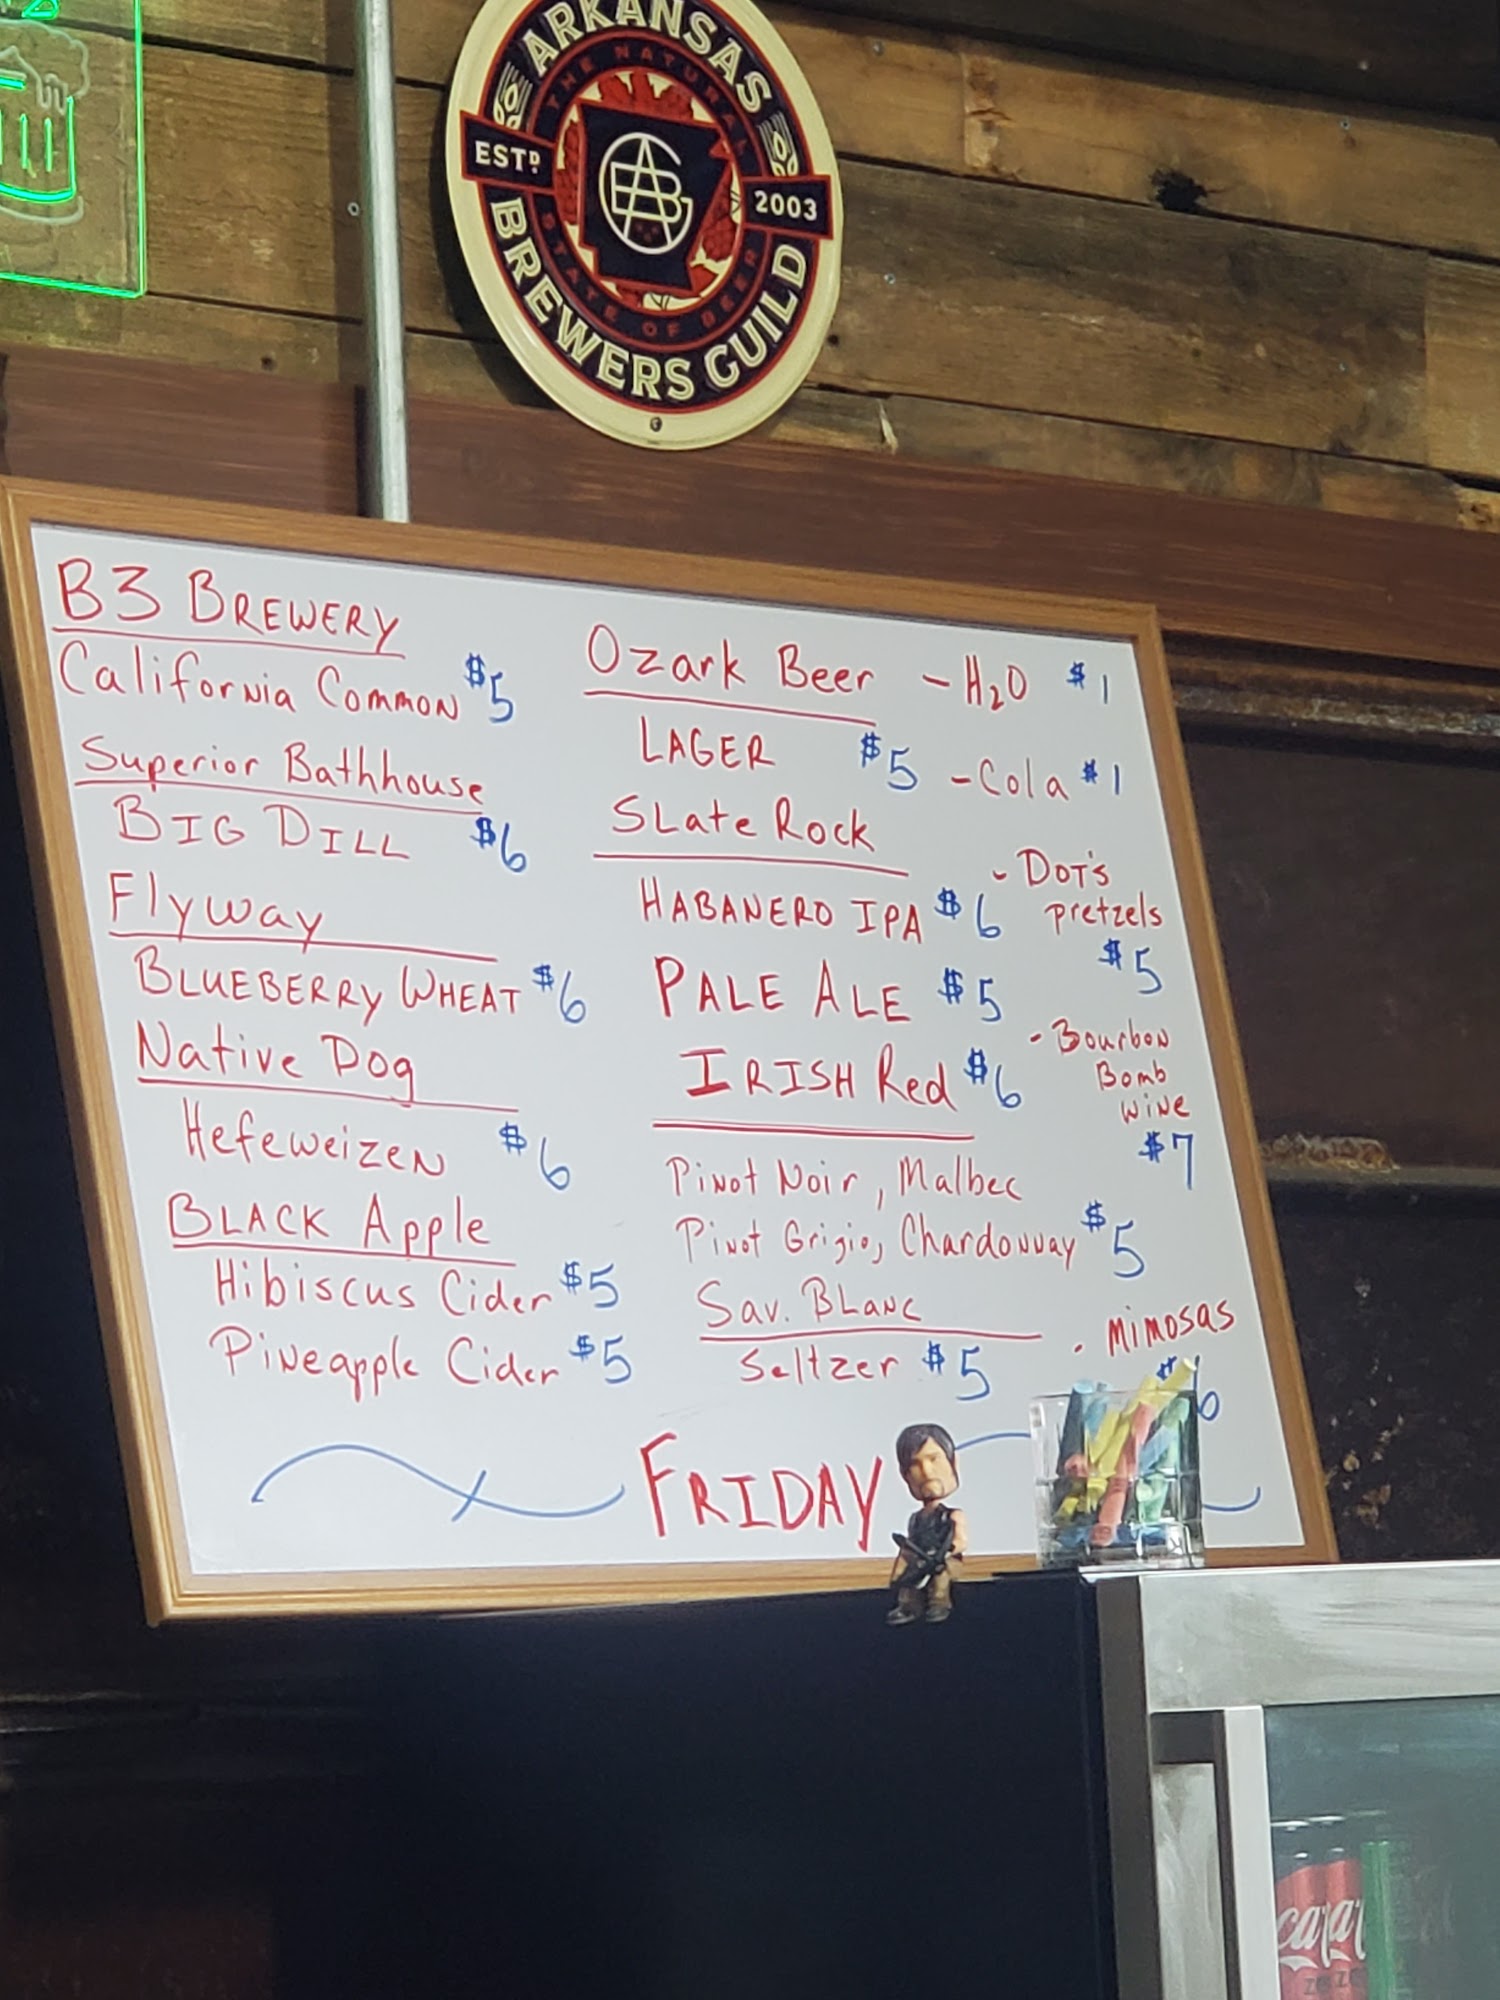 ARKANSAS
THE NATURAL
ESTD.
ABG
2003
STATE OF BEER
BREWERS GUILD
B3 BREWERY
California Common $5
Superior Bathhouse
BIG DILL $6
Flyway
BLUEBERRY WHEAT $6
Native Dog
Hefeweizen $6
BLACK Apple
Hibiscus Cider $5
Pineapple Cider $5
Ozark Beer
LAGER $5
SLate Rock
HABANERO IPA $6
PALE ALE $5
IRISH Red $6
Pinot Noir, Malbec
Pinot Grigio, Chardonnay $5
Sav. BLanc
Seltzer $5
- H2O $1
- Cola $1
- DOT's
pretzels
$5
- Bourbon
Bomb
wine
$7
- Mimosas
$6
FRIDAY